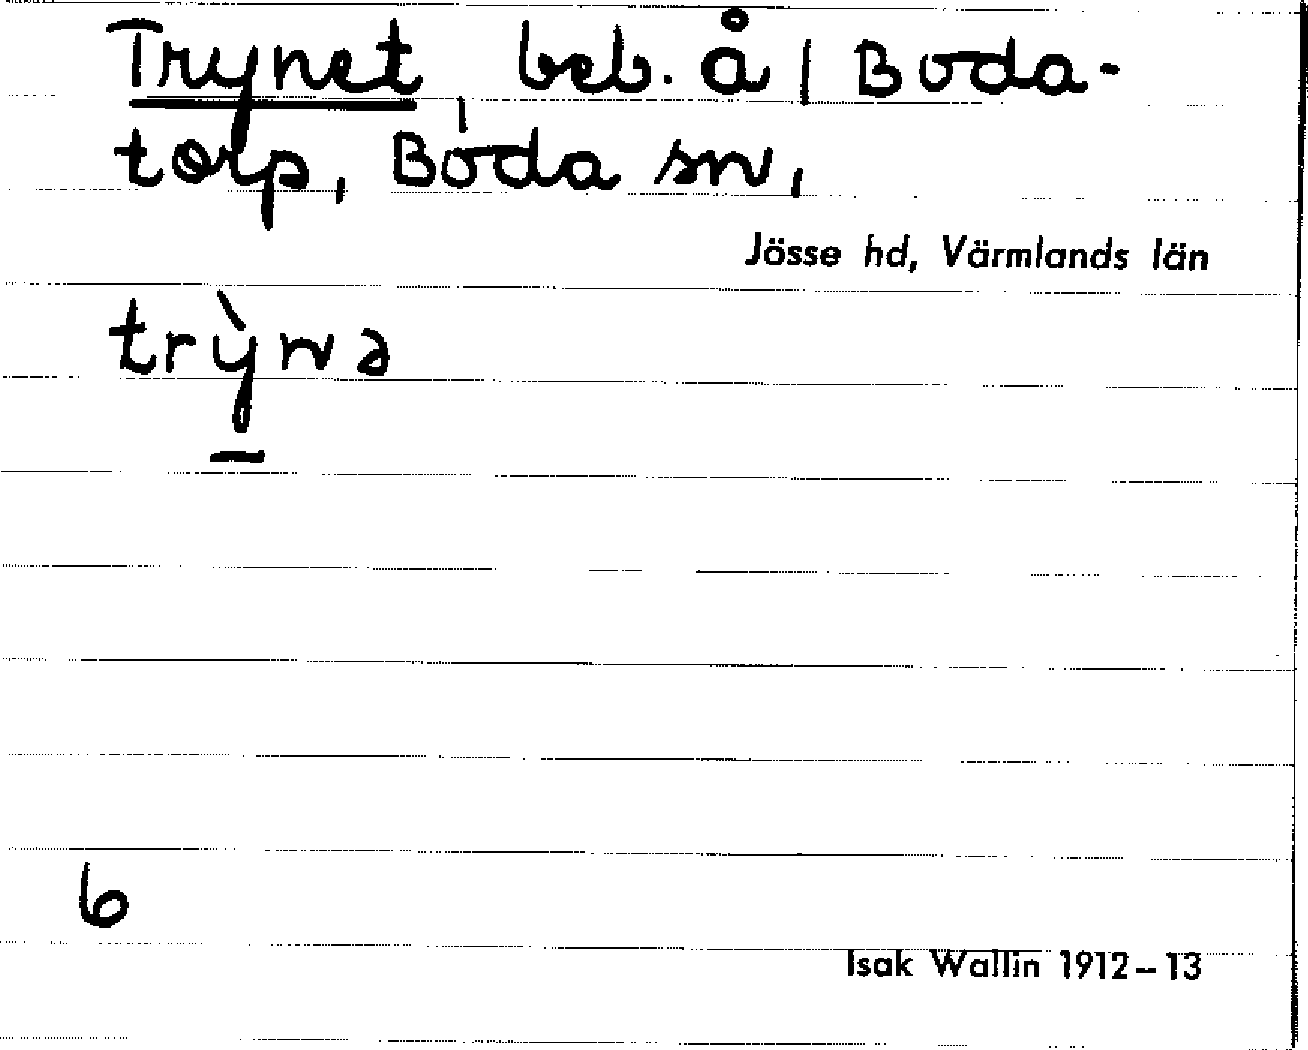 Trynet, beb. å | Boda-
torp, Boda sn,
Jösse hd, Värmlands län
trỳnə
6
Isak Wallin 1912–13